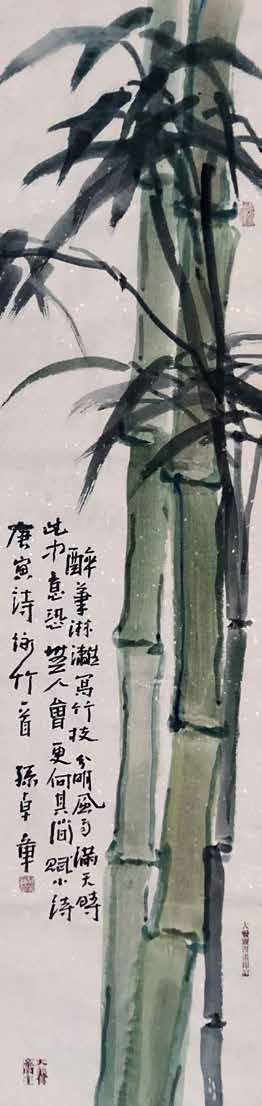 醉筆淋灕寫竹枝分明風雨滿天時
此中意恐無人會更向其間賦小詩
庚寅詩詠竹一首 孫卓章
大寶齋書畫印記